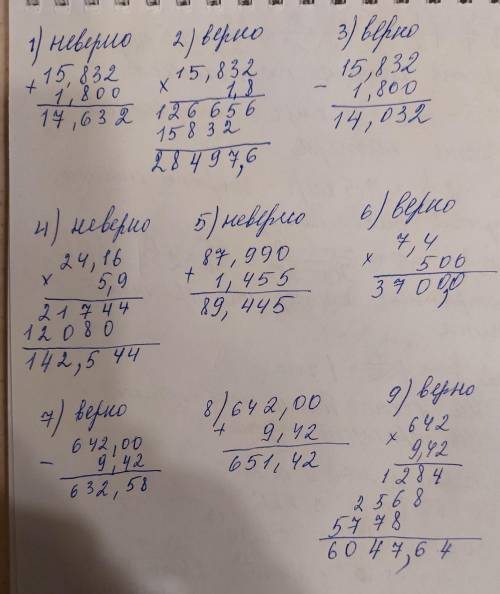 1) неверно
+ 15,832
1,800
17,632
2) верно
× 15,832
1,8
126656
15832
28497,6
3) верно
- 15,832
1,800
14,032
4) неверно
× 24,16
5,9
21744
12080
142,544
5) неверно
+ 87,990
1,455
89,445
6) верно
× 7,4
500
3700,0
7) верно
- 642,00
9,42
632,58
8) + 642,00
9,42
651,42
9) верно
× 642
9,42
1284
2568
5778
6047,64